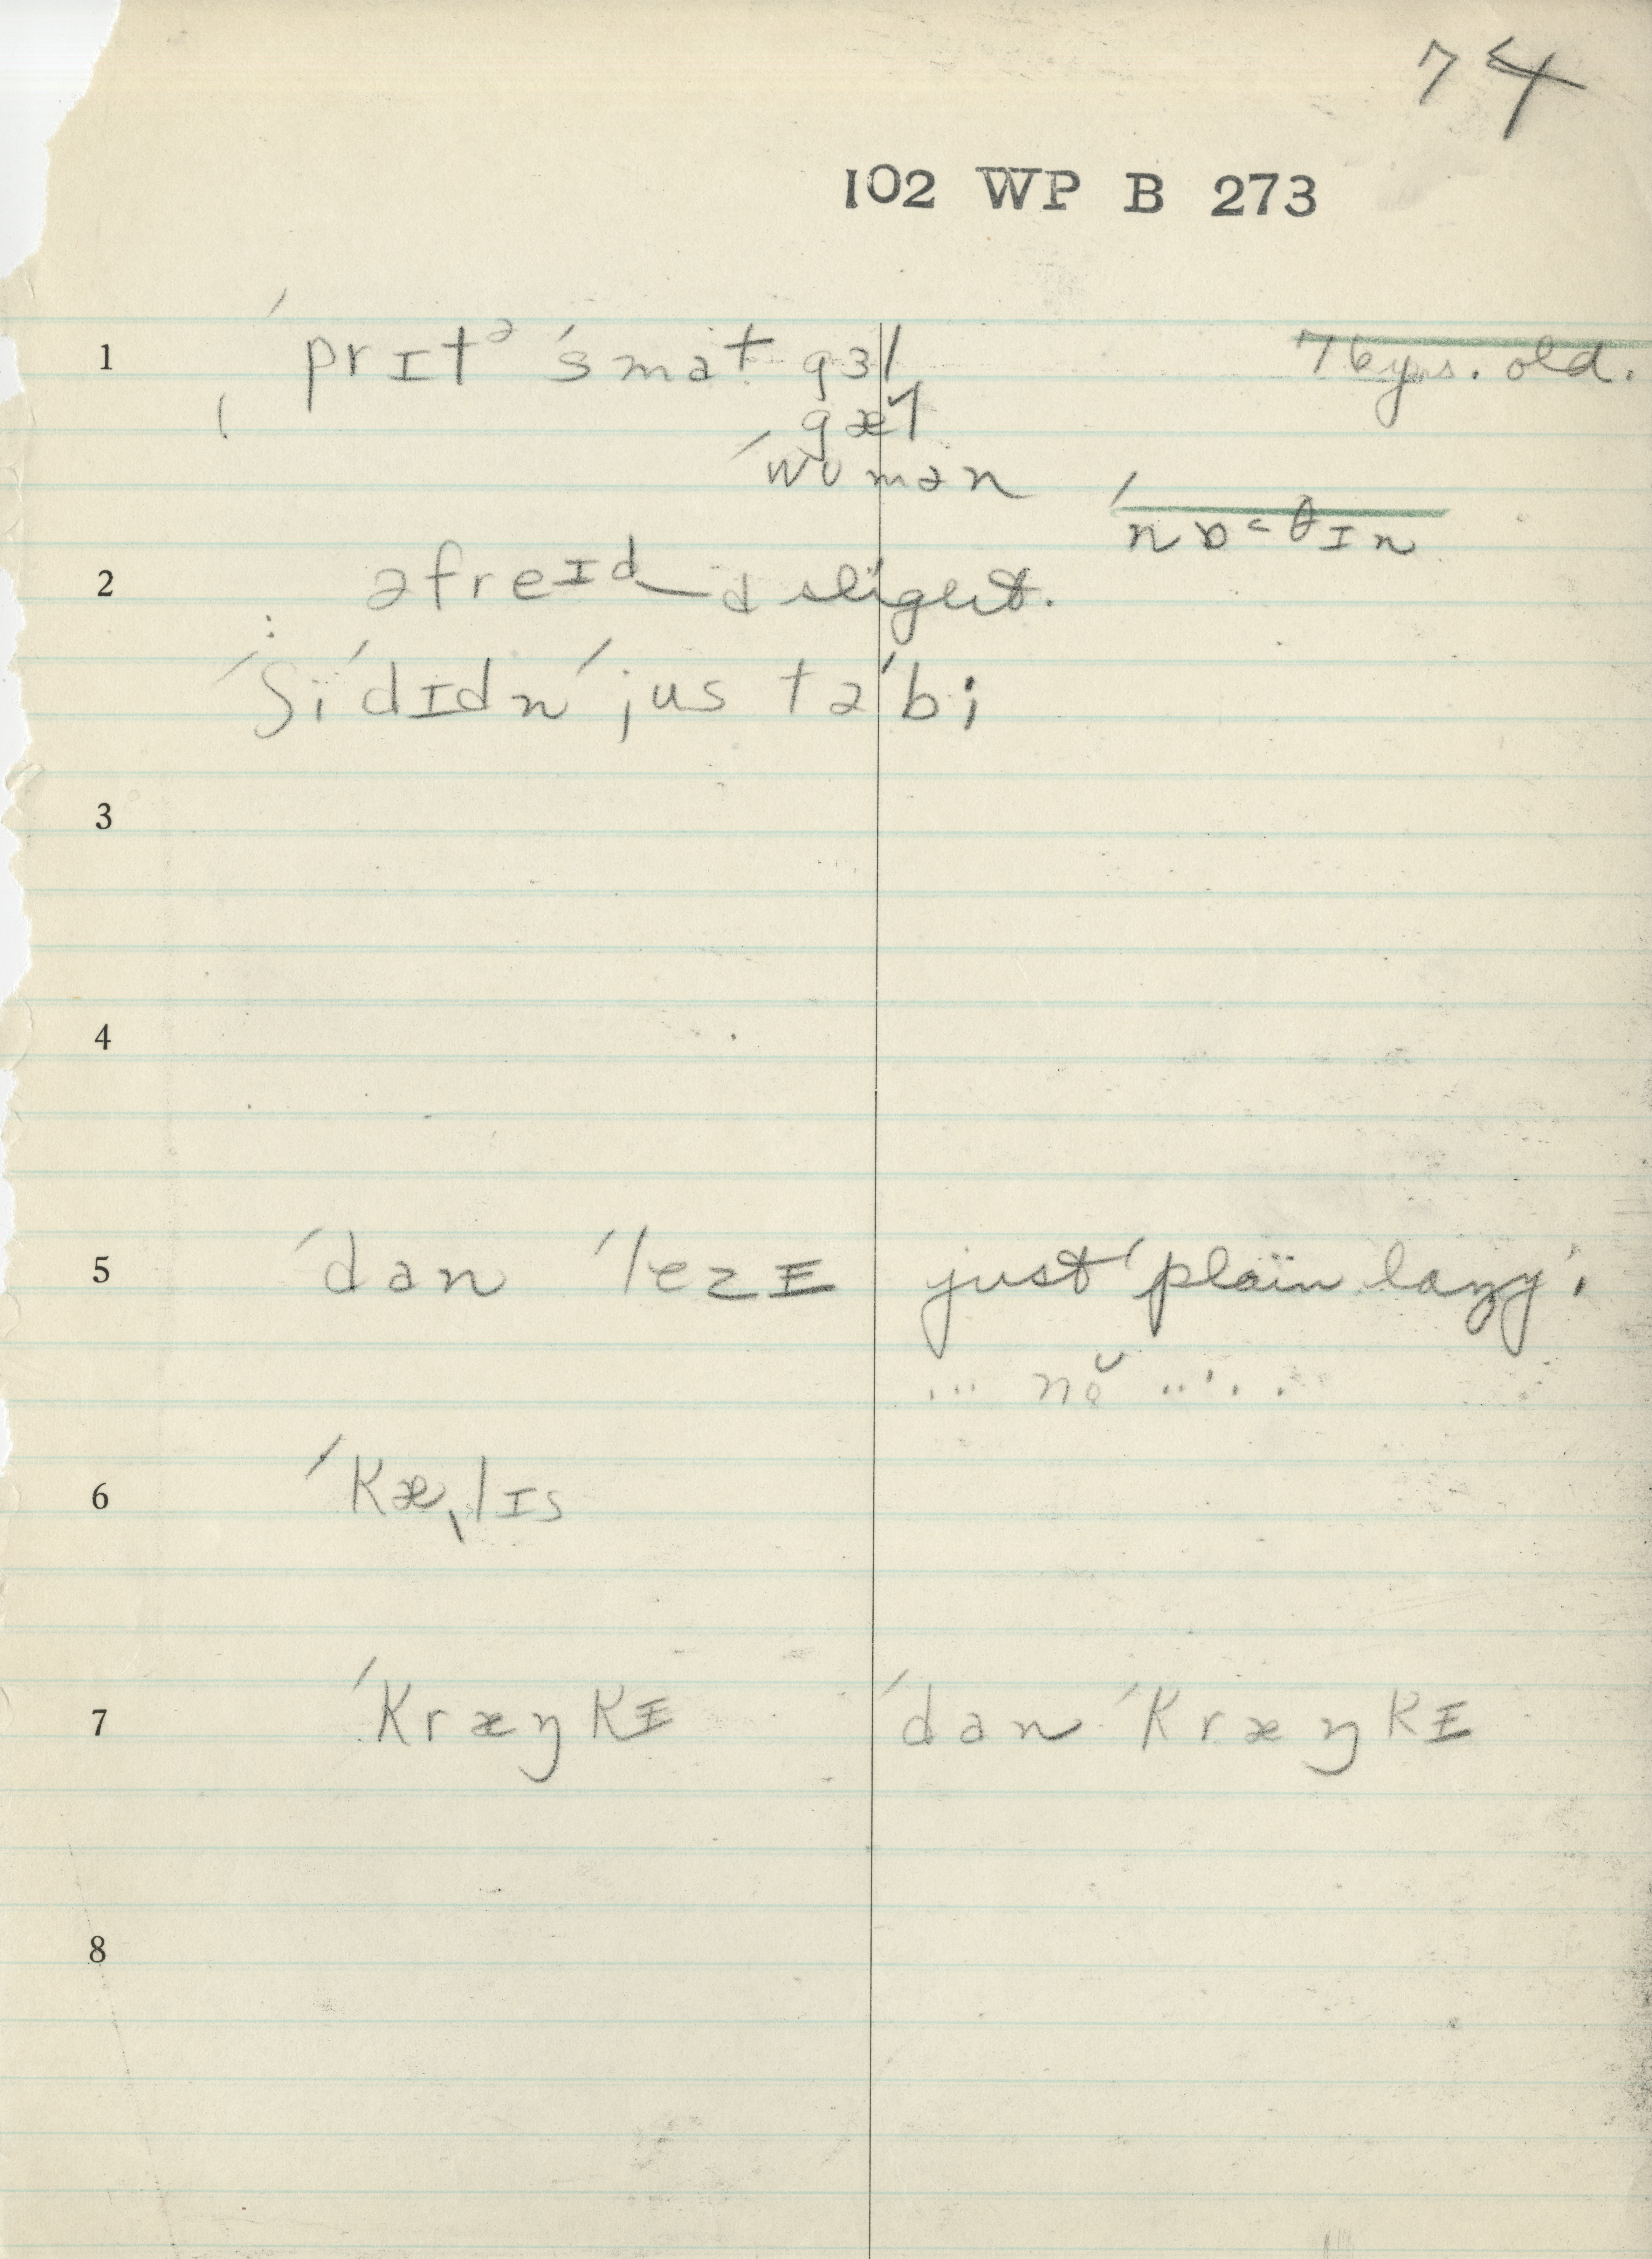 74
102 WP B 273
1 ˈprɪtᵊ ˈsmat gɜl 76 yrs. old.
gæl
ˈwʊmən
ˈnɒ‑θɪn
2 əfreɪd a sligut.
: ˈʃiˈdɪdn ˈjus təˈbi
3
4
5 ˈdan ˈlezɪ just ˈplain lazy'.
... nŏ .....
6 ˈkæˌlɪs
7 ˈkræŋkɪ ˈdan ˈkræŋkɪ
8